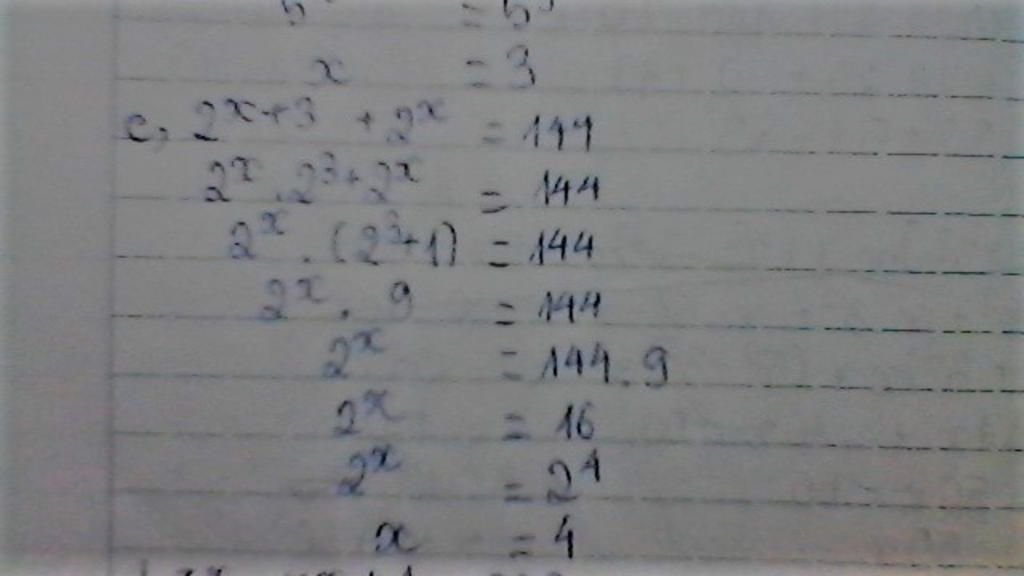 x = 3
c, 2^{x+3} + 2^x = 144
2^x . 2^3 + 2^x = 144
2^x . (2^3+1) = 144
2^x . 9 = 144
2^x = 144 . 9
2^x = 16
2^x = 2^4
x = 4